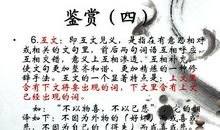 鉴赏（四）
• 6.互文：即互文见义，是指在有意思相对
或相关的文句里，前后两句词语互相呼应，
互相交错，意义上互相渗透、互相补充，
使文句更加整齐和谐、更加精炼的一种修
辞手法。互文的一个显著特点是：上文里
含有下文将要出现的词，下文里含有上文
已经出现的词。
如："不以物喜，不以己悲"，
译如下：不因外物的